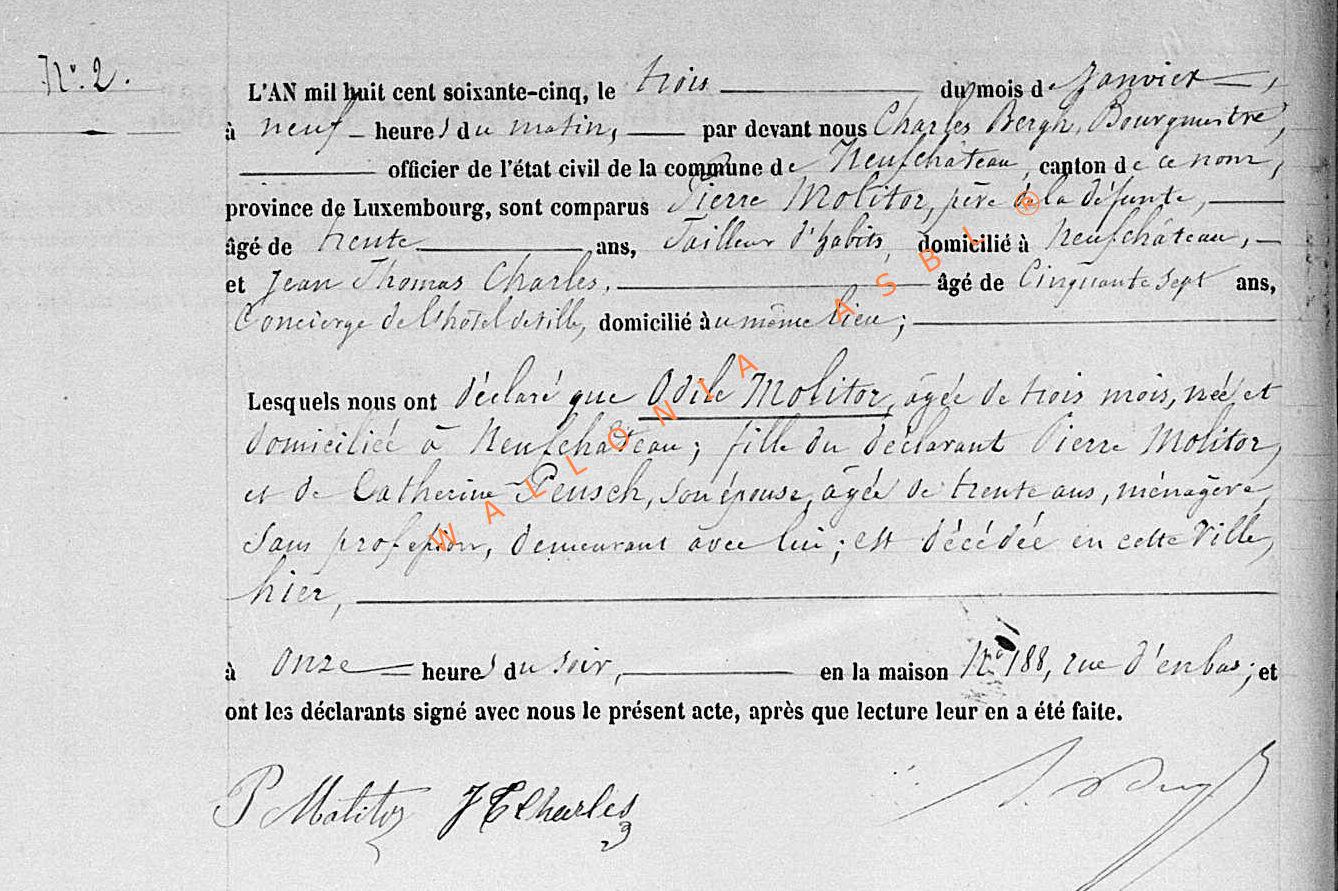 N.º 2.
L'AN mil huit cent soixante-cinq, le trois du mois de Janvier,
à neuf heures du matin, par devant nous Charles Bergh, Bourgmestre,
officier de l'état civil de la commune de Neufchâteau, canton de ce nom,
province de Luxembourg, sont comparus Pierre Molitor, père de la défunte,
âgé de trente ans, Tailleur d'habits, domicilié à Neufchâteau,
et Jean Thomas Charles, âgé de Cinquante sept ans,
Concierge de l'hôtel de ville, domicilié au même lieu;
Lesquels nous ont déclaré que Odile Molitor, âgée de trois mois, née et
domiciliée à Neufchâteau; fille du déclarant Pierre Molitor,
et de Catherine Peusch, son épouse, âgée de trente ans, ménagère,
sans profession, demeurant avec lui; est décédée en cette Ville,
hier,
à onze heures du soir, en la maison Nº 188, rue d'enbas; et
ont les déclarants signé avec nous le présent acte, après que lecture leur en a été faite.
P Molitor JT Charles
WALLONIA ASBL ®